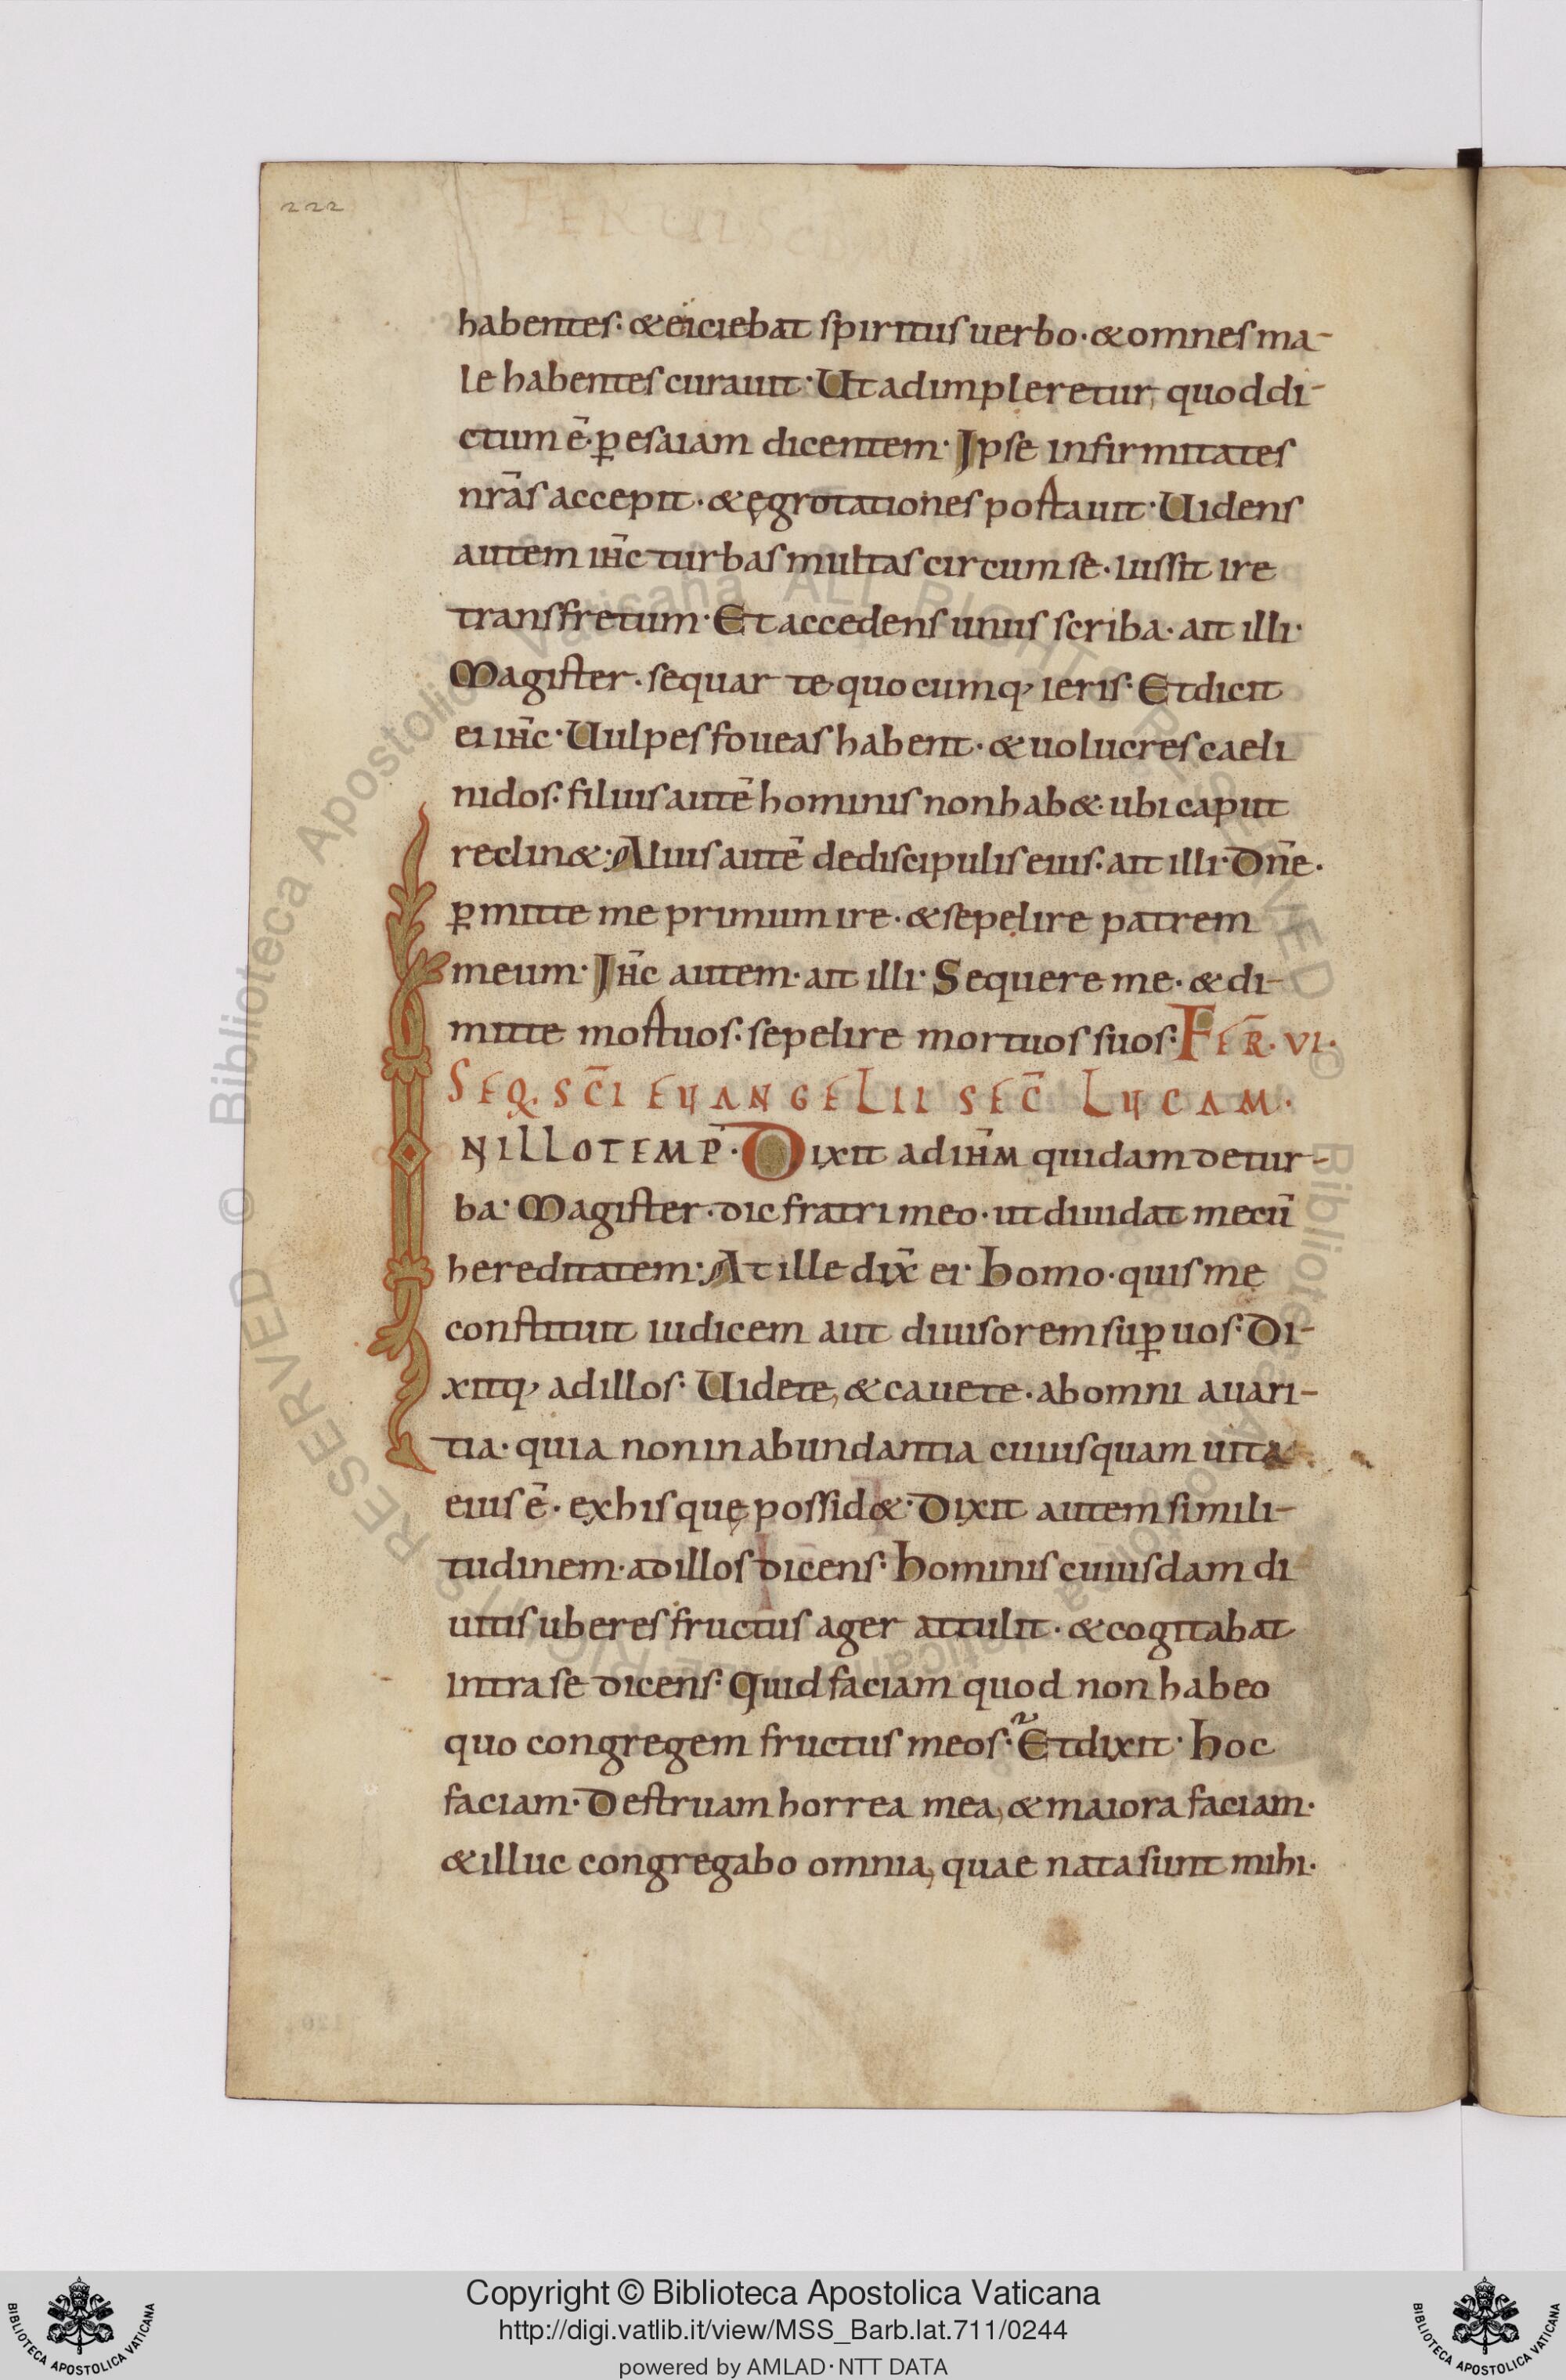 222
habentes· & eiciebat spiritus uerbo· & omnes ma-
le habentes curauit· Ut adimpleretur, quod di-
ctum ē· ꝑ esaiam dicentem· Ipse infirmitates
nr̄as accepit· & ęgrotationes portauit· Uidens
autem ih̄c turbas multas circum se· iussit ire
transfretum· Et accedens unus scriba· ait illi·
Magister· sequar te quocumq, ieris· Et dicit
ei ih̄c· Uulpes foueas habent· & uolucres caeli
nidos· filius autē hominis non hab&· ubi caput
reclin&· Alius autē de discipulis eius· ait illi· Dn̄e·
ꝑmitte me primum ire· & sepelire patrem
meum· Ih̄c autem· ait illi· Sequere me· & di-
mitte mortuos· sepelire mortuos suos· FER̄· VI·
SEQ· SC̄I EUANGELII SEC̄ LUCAM·
IN ILLO TEMP̄· Dixit ad ih̄m quidam de tur-
ba· Magister· dic fratri meo· ut diuidat mecū
hereditatem· At ille dix̄ ei· homo· quis me
constituit iudicem aut diuisorem suꝑ uos· Di-
xitq, ad illos· Uidete, & cauete· ab omni auari-
tia· quia non in abundantia cuiusquam uita
eius ē· ex his quę possid&· Dixit autem simili-
tudinem· ad illos dicens· hominis cuiusdam di
uitis uberes fructus ager attulit· & cogitabat
intra se dicens· Quid faciam quod non habeo
quo congregem fructus meos· Et dixit· hoc
faciam· Destruam horrea mea, & maiora faciam·
& illuc congregabo omnia, quae nata sunt mihi·
Copyright © Biblioteca Apostolica Vaticana
http://digi.vatlib.it/view/MSS_Barb.lat.711/0244
powered by AMLAD · NTT DATA
BIBLIOTECA APOSTOLICA VATICANA
BIBLIOTECA APOSTOLICA VATICANA